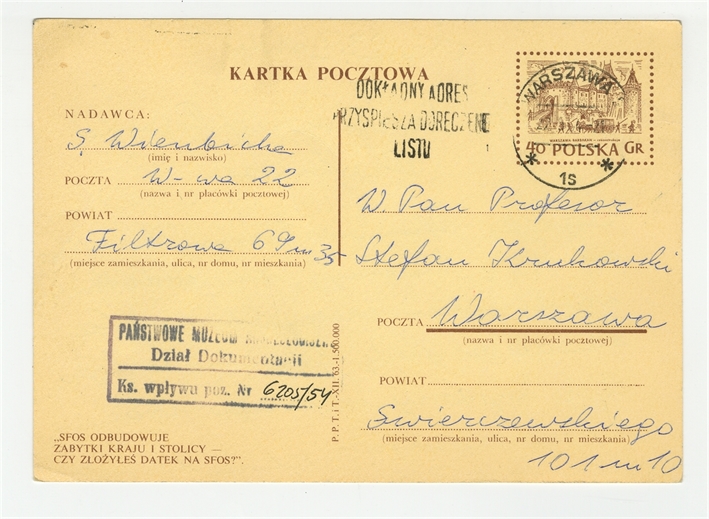 KARTKA POCZTOWA
NADAWCA:
S. Wienbicka
(imię i nazwisko)
POCZTA W-wa 22
(nazwa i nr placówki pocztowej)
POWIAT
Filtrowa 69 m 35
(miejsce zamieszkania, ulica, nr domu, nr mieszkania)
DOKŁADNY ADRES
PRZYSPIESZA DORĘCZENIE
LISTU
WARSZAWA
1s
40 POLSKA GR
W. Pan Profesor
Stefan Krukowski
POCZTA Warszawa
(nazwa i nr placówki pocztowej)
POWIAT
Swierczewskiego
(miejsce zamieszkania, ulica, nr domu, nr mieszkania)
101 m 10
PAŃSTWOWE MUZEUM ARCHEOLOGICZNE
Dział Dokumentacji
Ks. wpływu poz. Nr 6205/54
P. P. T. i T.-XII. 63.-1.500.000
„SFOS ODBUDOWUJE
ZABYTKI KRAJU I STOLICY —
CZY ZŁOŻYŁEŚ DATEK NA SFOS?".